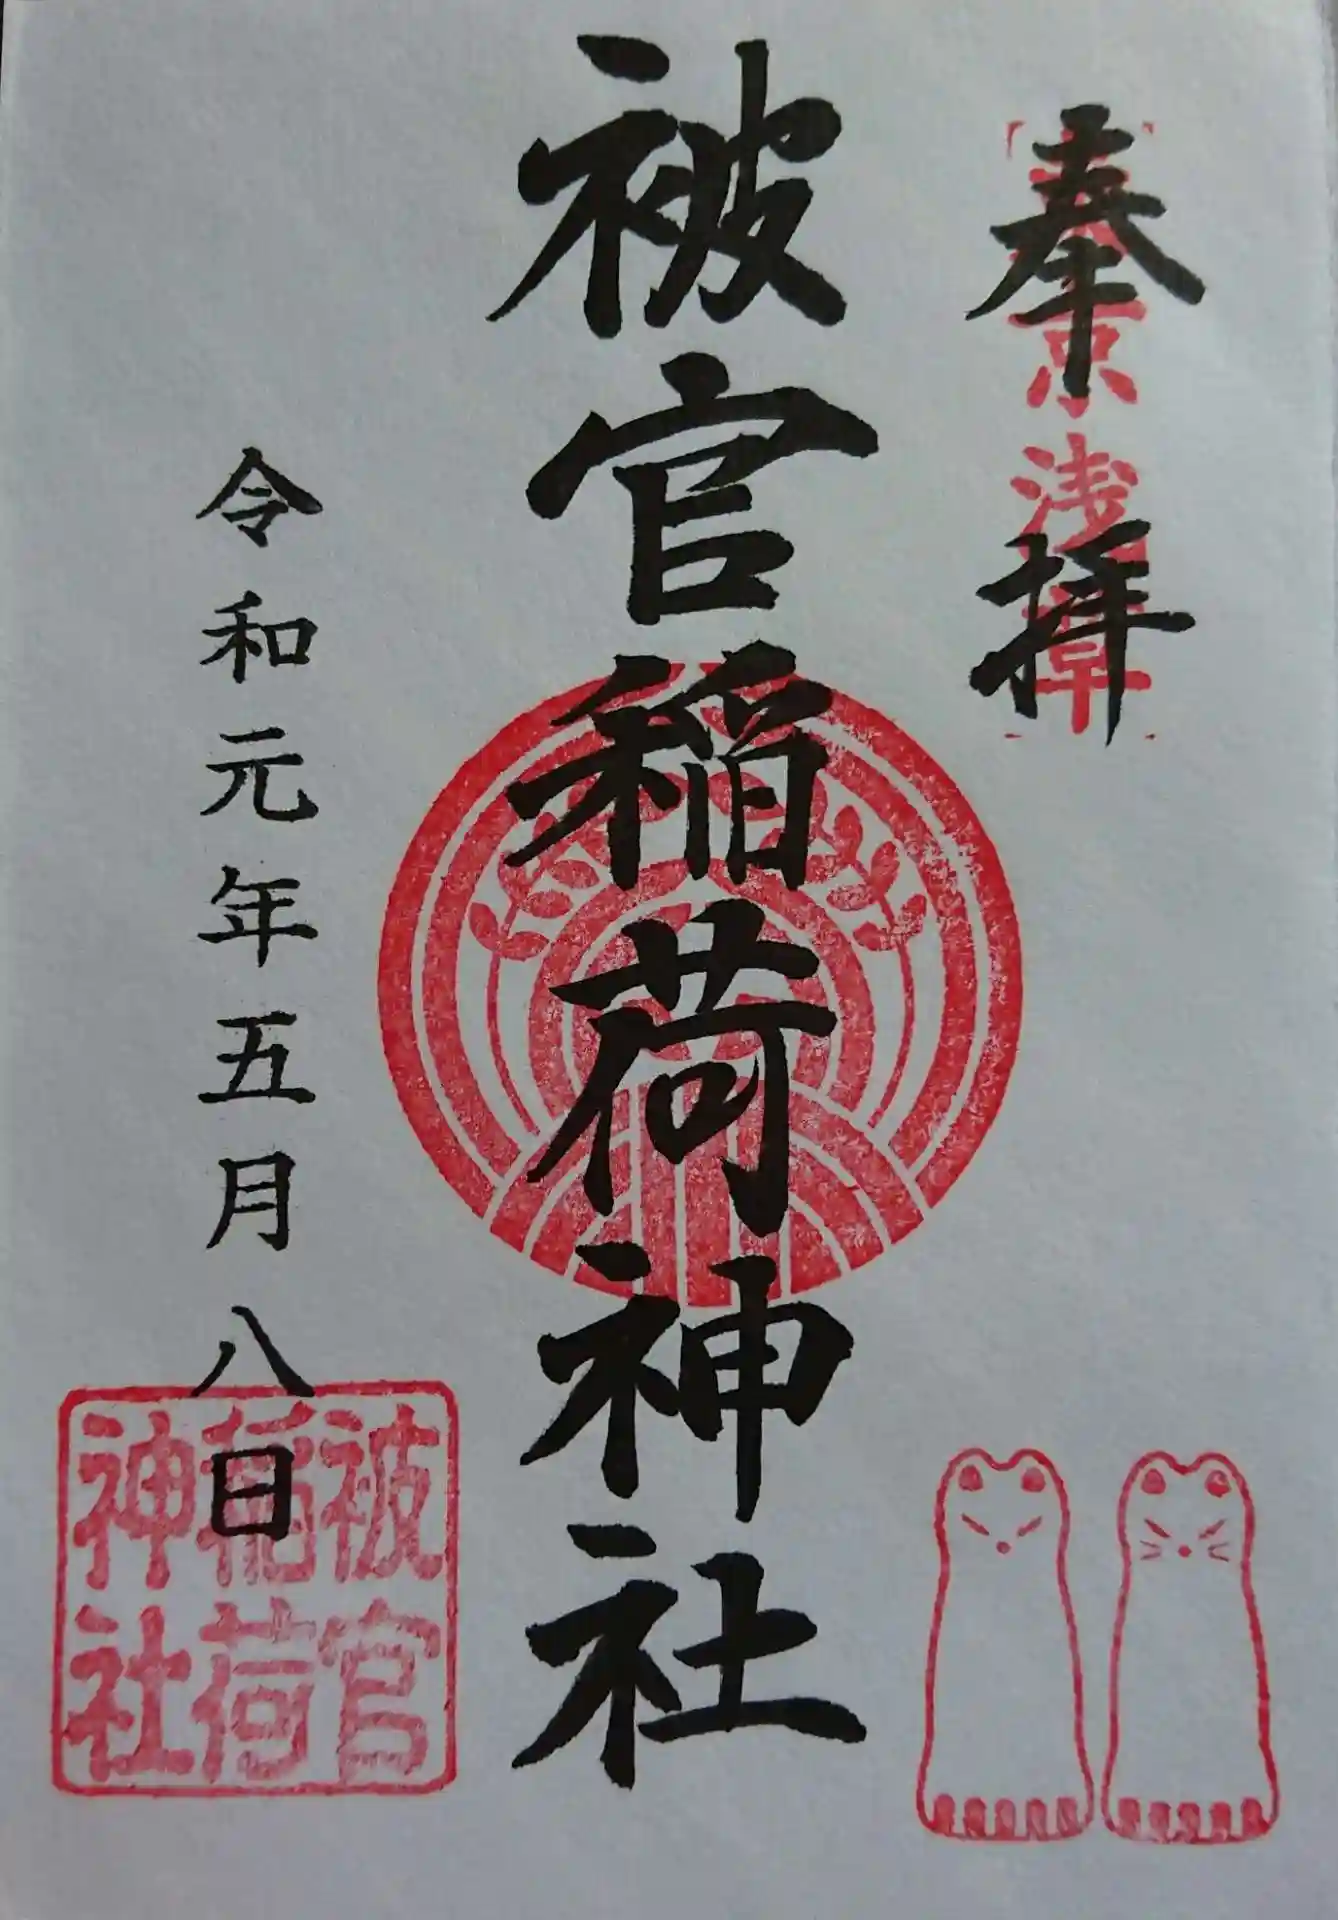 奉拝
東京浅草
被官稲荷神社
令和元年五月八日
被官
稲荷
神社